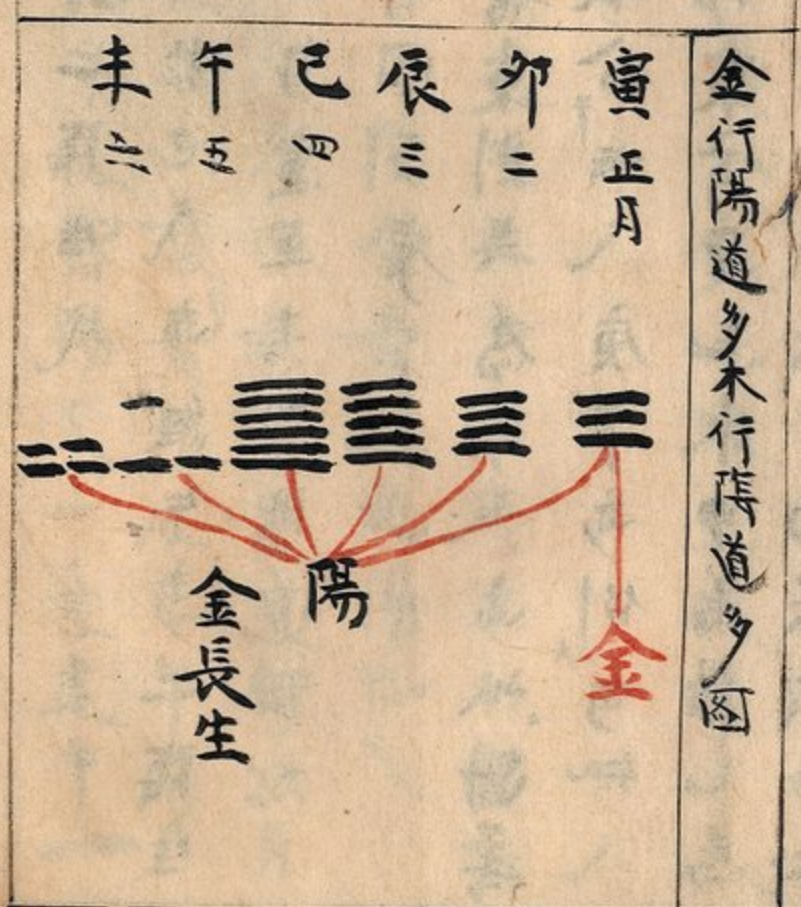 金行陽道多木行陰道多图
寅 正月
卯 二
辰 三
巳 四
午 五
未 六
金
陽
金長生